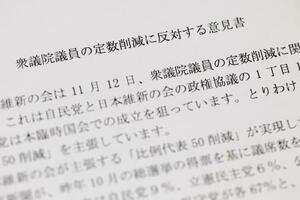 衆議院議員の定数削減に反対する意見書
維新の会は11月12日、衆議院議員の定数削減に関
これは自民党と日本維新の会の政権協議の1丁目1
党は本臨時国会での成立を狙っています。とりわけ
50削減」を主張しています。
新の会が主張する「比例代表50削減」が実現し
、昨年10月の総選挙の得票を基に議席数を
自民党9%、立憲民主党6%、公
党が各67%と